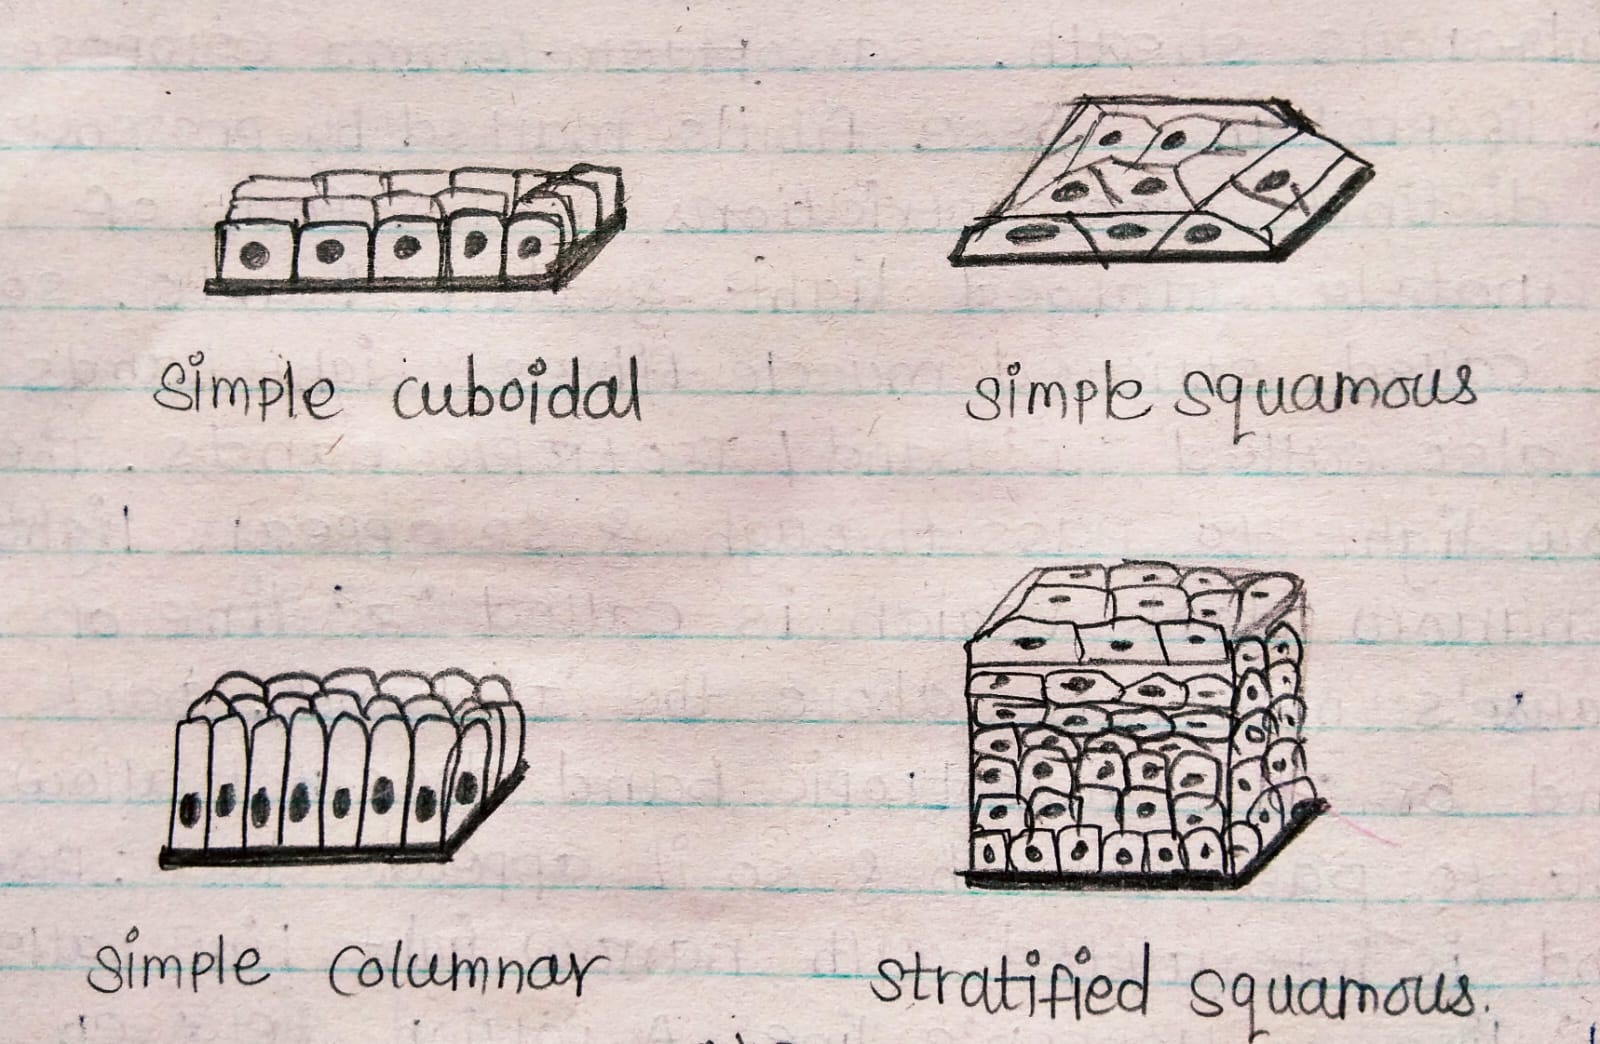 simple cuboidal
simple squamous
simple columnar
stratified squamous.